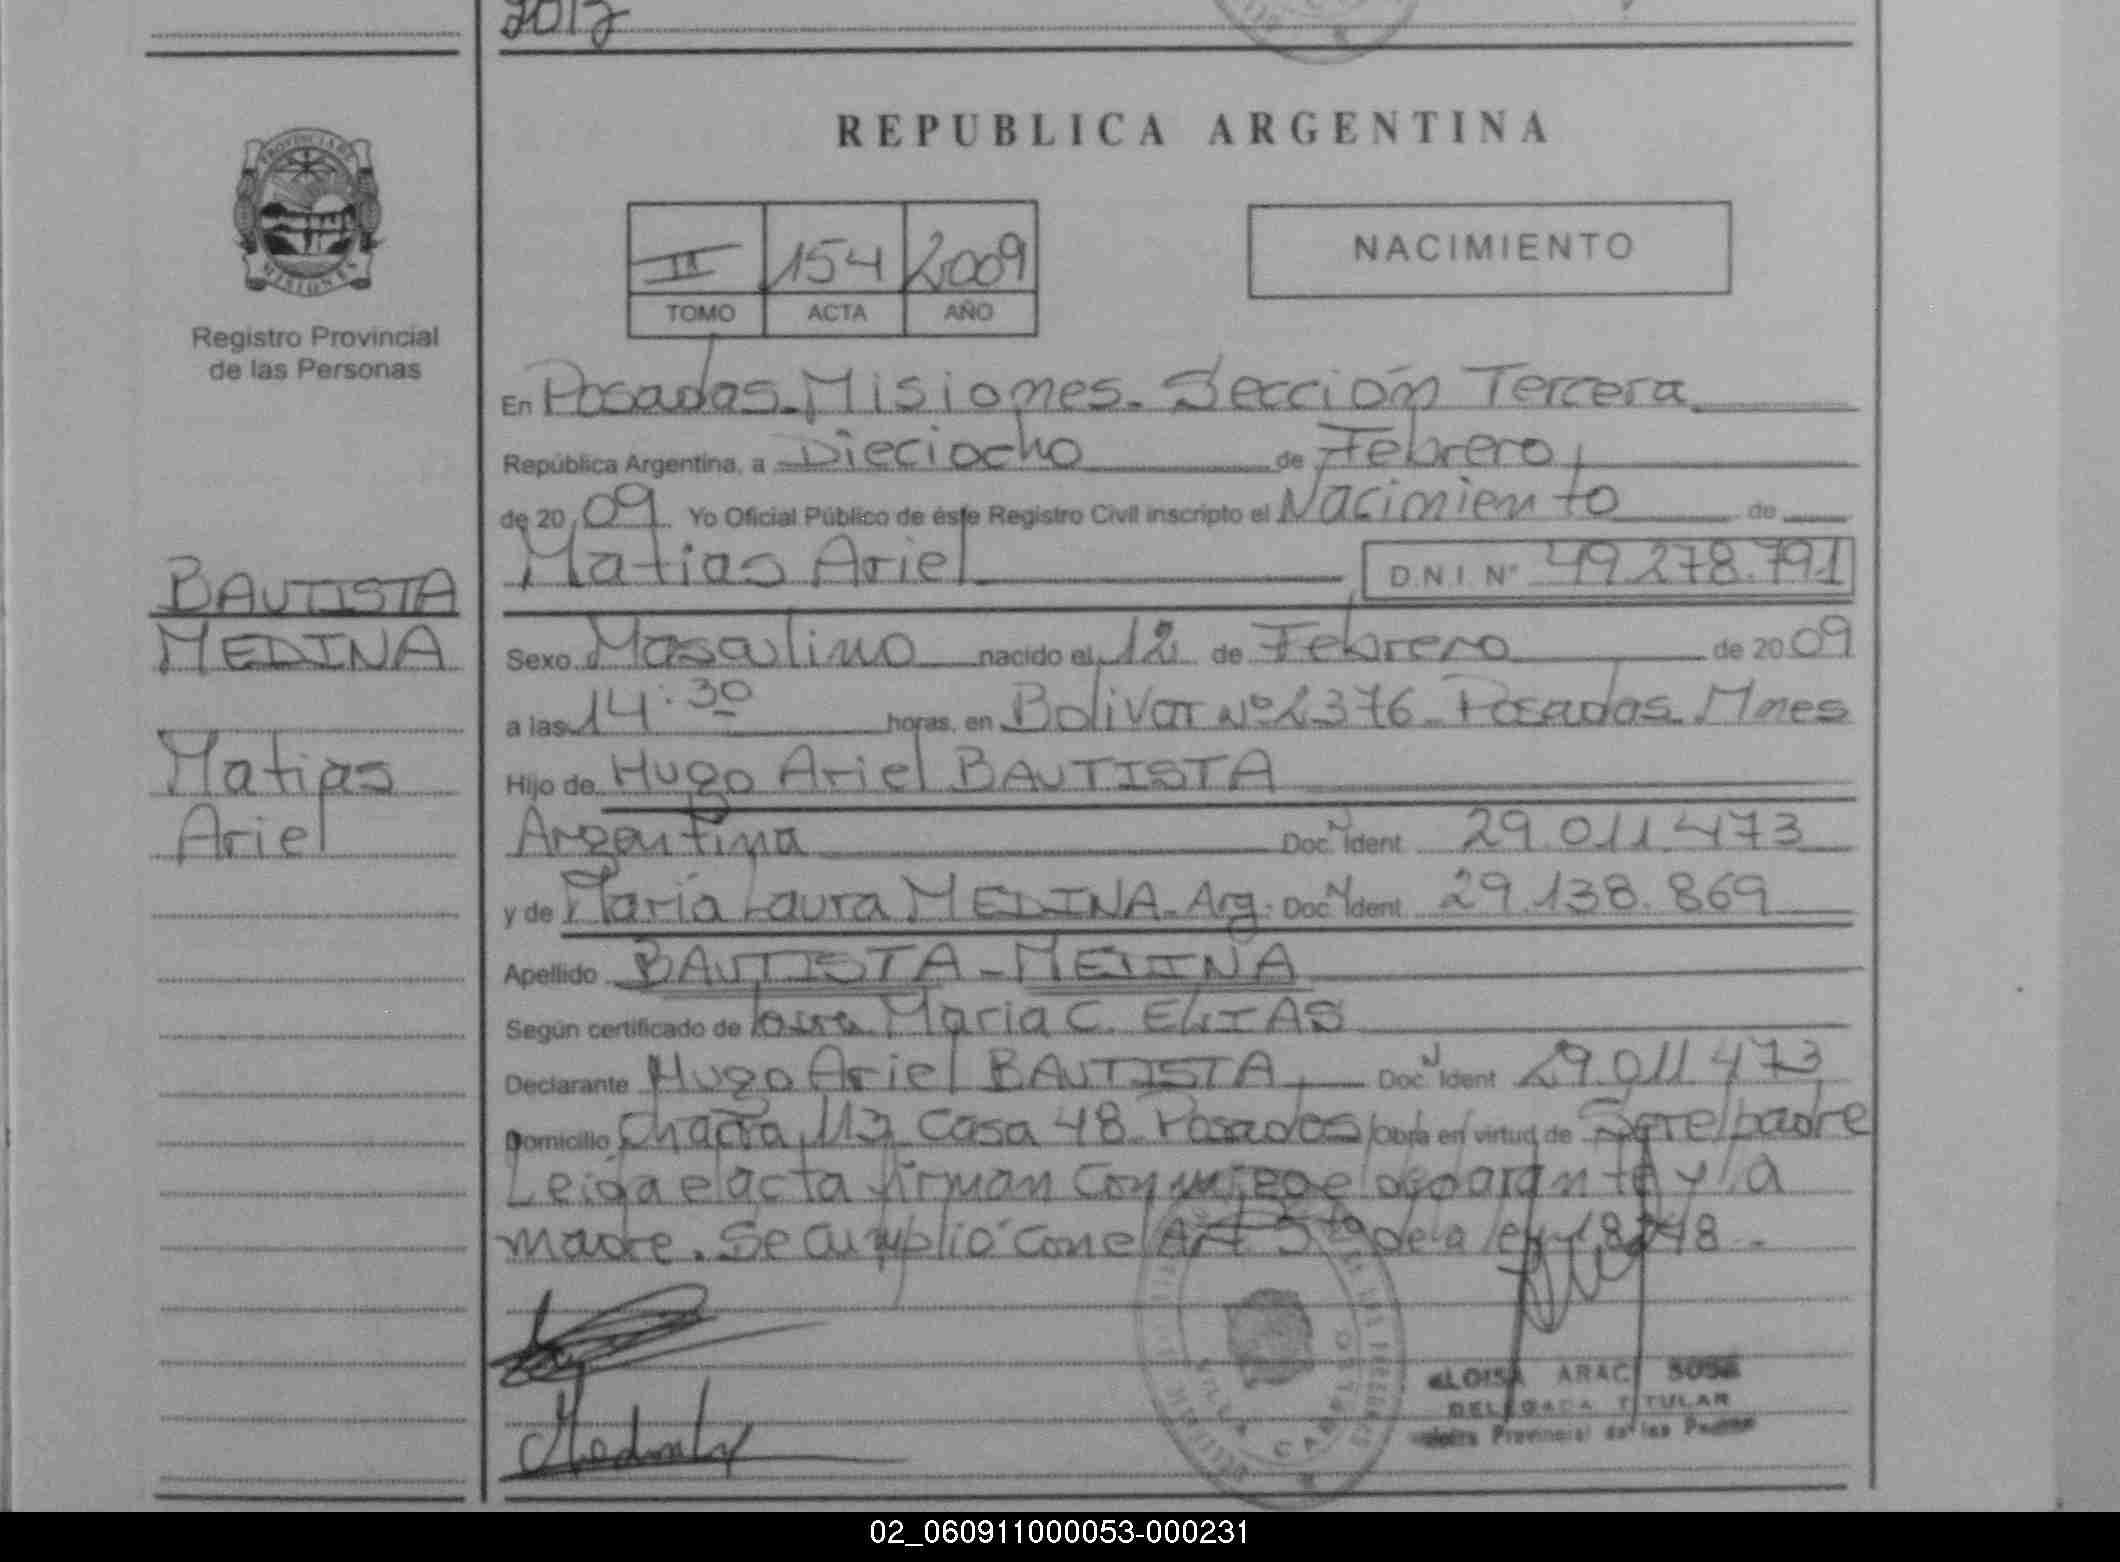 2017
REPUBLICA ARGENTINA
PROVINCIA DE
MISIONES
Registro Provincial
de las Personas
II 154 2009
TOMO ACTA AÑO
NACIMIENTO
En Posadas. Misiones. Sección Tercera
República Argentina, a Dieciocho de Febrero
de 20 09 Yo Oficial Público de éste Registro Civil inscripto el Nacimiento de
Matias Ariel D.N.I. Nº 49.278.791
BAUTISTA
MEDINA
Matias
Ariel
Sexo Masculino nacido el 12 de Febrero de 20 09
a las 14:30 horas, en Bolivar Nº 2376 Posadas. Mnes
Hijo de Hugo Ariel BAUTISTA
Argentina Doc. N Ident 29.011.473
y de María Laura MEDINA. Arg. Doc. N Ident 29.138.869
Apellido BAUTISTA - MEDINA
Según certificado de Maria C. ELIAS
Declarante Hugo Ariel BAUTISTA, Doc. N Ident 29.011.473
Domicilio Chacra 113 Casa 48 Posadas obra en virtud de Ser el padre
Leida el acta firman conmigo el declarante y la
madre. Se cumplió con el Art 5to de la ley 18.248.
VILLA CABELLO
ARAC SOSA
DELEGADA TITULAR
Provincial de las
02_060911000053-000231